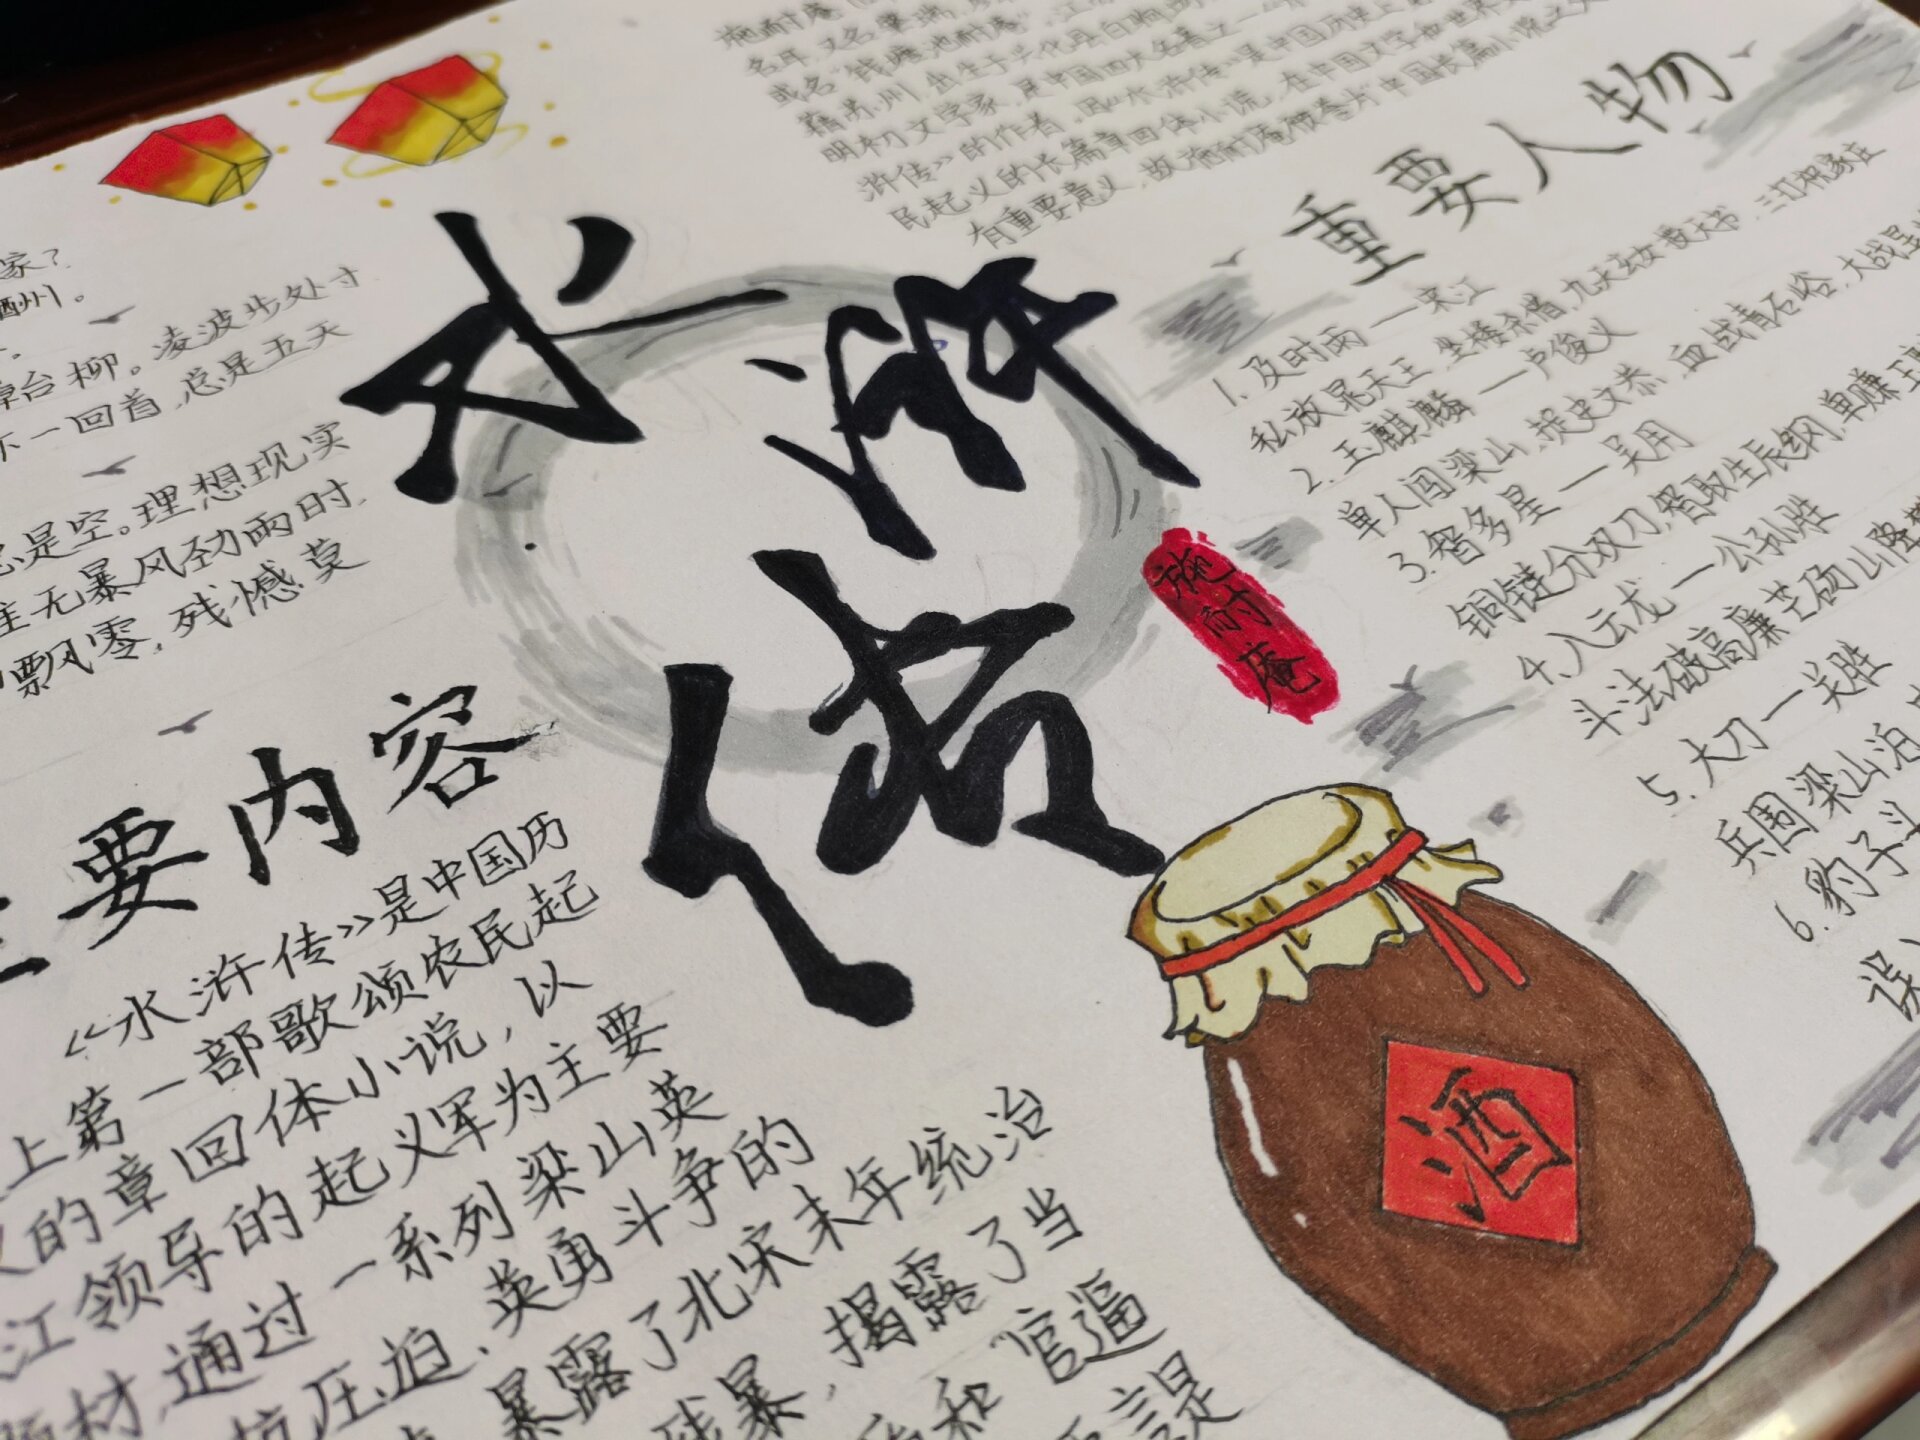 名耳，又名肇瑞，
或名“钱塘施耐庵”，
籍苏州，出生于兴化县白驹场
明初文学家，是中国四大名著之一“水
浒传》的作者，因《水浒传》是中国历史上
民起义的长篇章回体小说，在中国文学和世界文
有重要意义，故施耐庵被誉为“中国长篇小说之父
家？
酒州。
章台柳。凌波步处寸
不一回首，总是五天
总是空。理想现实
主无暴风劲雨时，
飘零，残憾莫
水浒
传
施耐庵
重要人物
1.及时雨一宋江
私放晁天王，坐楼杀惜，九天玄女授天书，三打祝家庄
2.玉麒麟一卢俊义
单人闯梁山，捉史文恭，血战青石峪，大战昱
3.智多星一吴用
铜链分双刀，智取生辰纲，单赚玉
4.入云龙一公孙胜
斗法破高廉芒砀山降
5.大刀一关胜
兵围梁山泊
6.豹子头
误
主要内容
《水浒传》是中国历
史上第一部歌颂农民起
义的章回体小说，以
江领导的起义军为主要
题材，通过一系列梁山英
抗压迫、英勇斗争的
暴露了北宋末年统治
残暴，揭露了当
和“官逼
言是
酒